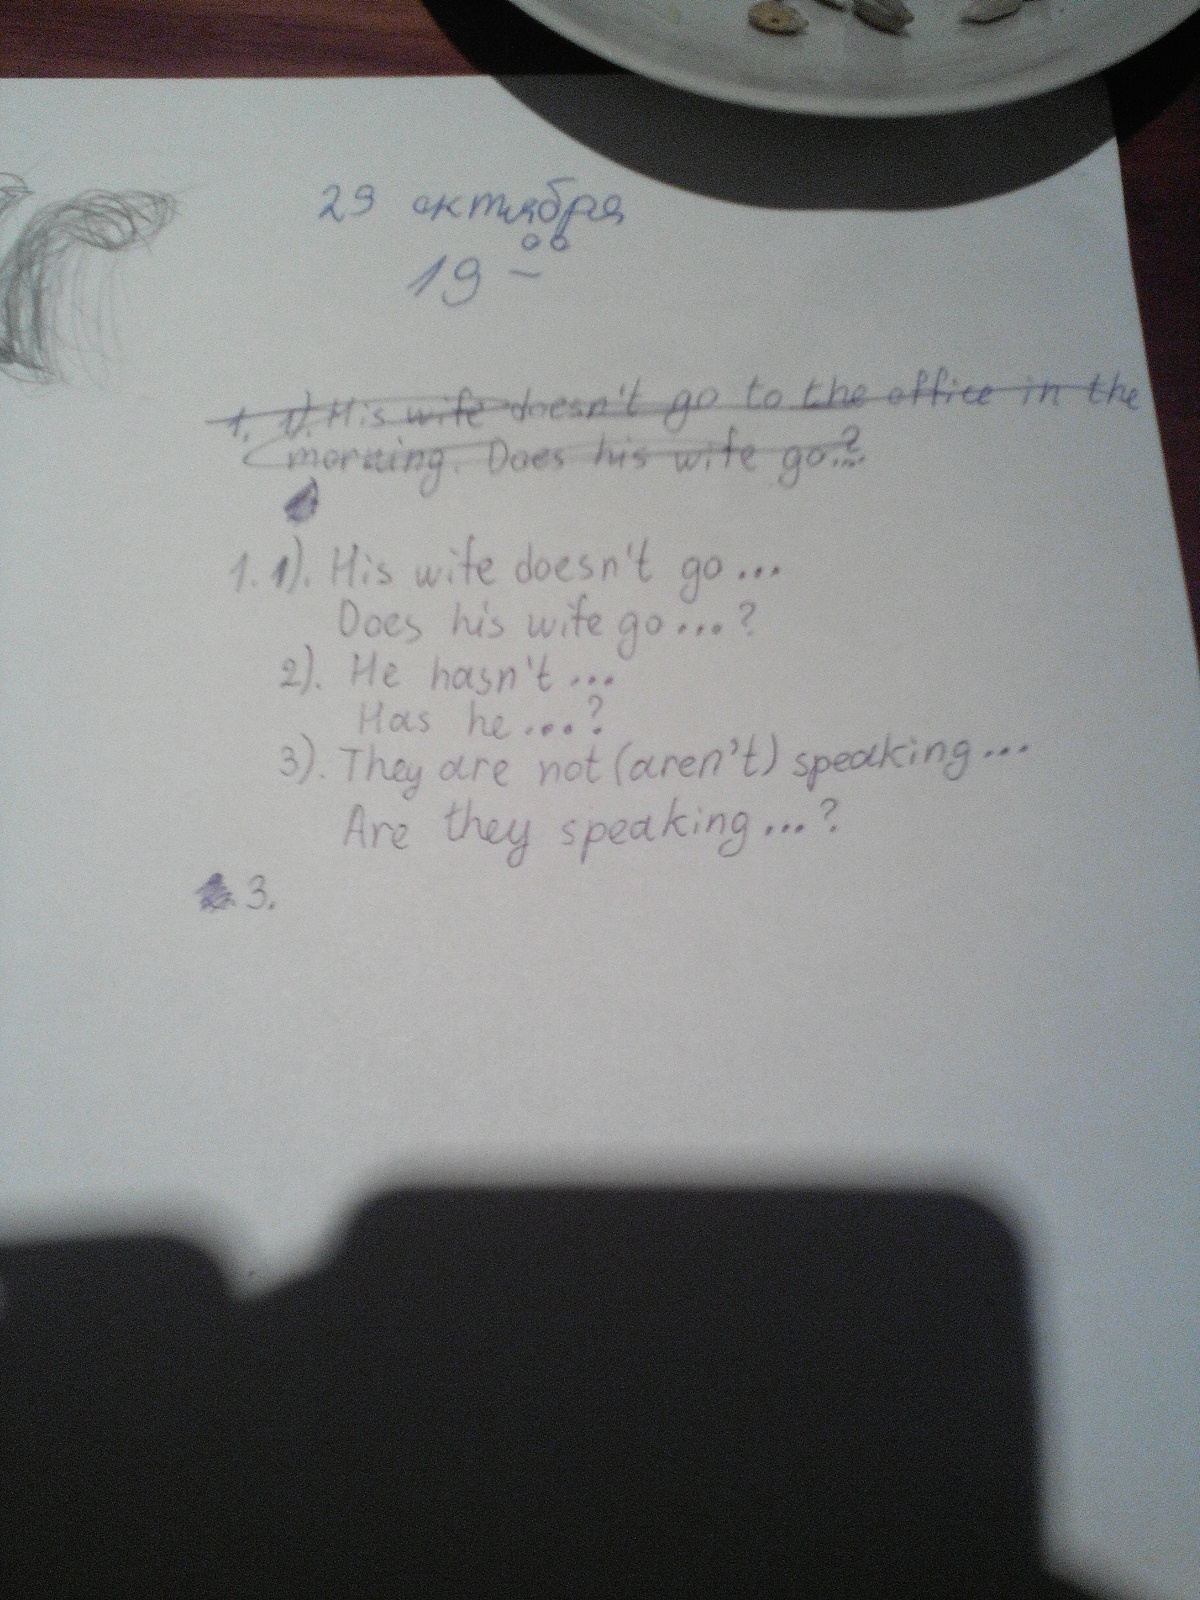 29 октября
19 00
1. 1). His wife doesn't go to the office in the
morning. Does his wife go...?
1. 1). His wife doesn't go...
Does his wife go...?
2). He hasn't...
Has he...?
3). They are not (aren't) speaking...
Are they speaking...?
3.